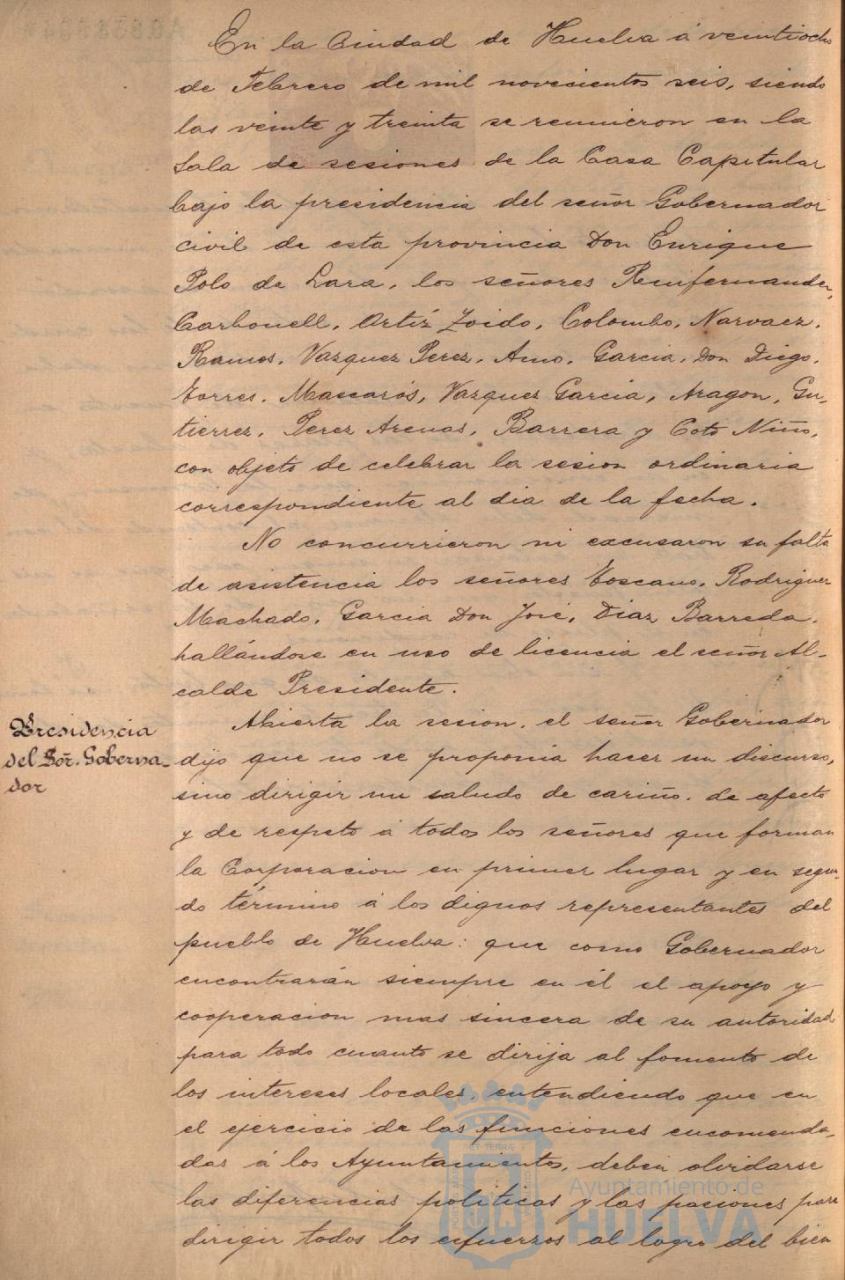 En la Ciudad de Huelva á veintiocho
de Febrero de mil novecientos seis, siendo
las veinte y treinta se reunieron en la
Sala de sesiones de la Casa Capitular
bajo la presidencia del señor Gobernador
civil de esta provincia Don Enrique
Polo de Lara, los señores Ruifernandez,
Carbonell, Ortiz Zoido, Colombo, Narvaez,
Ramos, Vazquez Perez, Amo, Garcia, Don Diego,
Torres, Mascarós, Vazquez Garcia, Aragon, Gu-
tierrez, Perez Arenas, Barrera y Coto Niño,
con objeto de celebrar la sesion ordinaria
correspondiente al dia de la fecha.
No concurrieron ni excusaron su falta
de asistencia los señores Toscano, Rodriguez
Machado, Garcia Don José, Diaz Barreda,
hallándose en uso de licencia el señor Al-
calde Presidente.
Presidencia
del Sor. Goberna-
dor
Abierta la sesion, el señor Gobernador
dijo que no se proponia hacer un discurso,
sino dirigir un saludo de cariño, de afecto
y de respeto á todos los señores que forman
la Corporacion en primer lugar y en segun-
do término á los dignos representantes del
pueblo de Huelva: que como Gobernador
encontrarán siempre en él el apoyo y
cooperacion mas sincera de su autoridad
para todo cuanto se dirija al fomento de
los intereses locales, entendiendo que en
el ejercicio de las funciones encomenda-
das á los Ayuntamientos, deben olvidarse
las diferencias políticas y las pasiones para
dirigir todos los esfuerzos al logro del bien
Ayuntamiento de
HUELVA